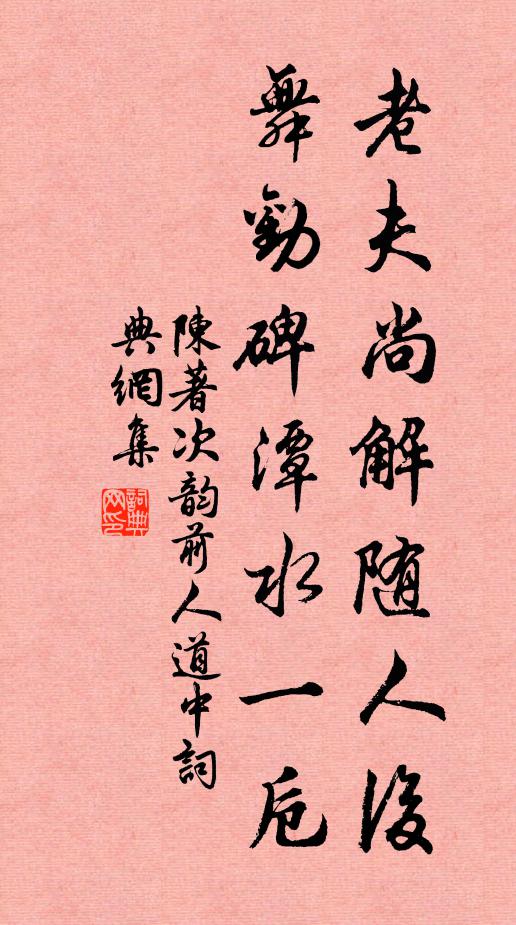 老夫尚解随人後
舞勸碑潭水一卮
陳著次韵前人道中詞
典網集
詞典
网印